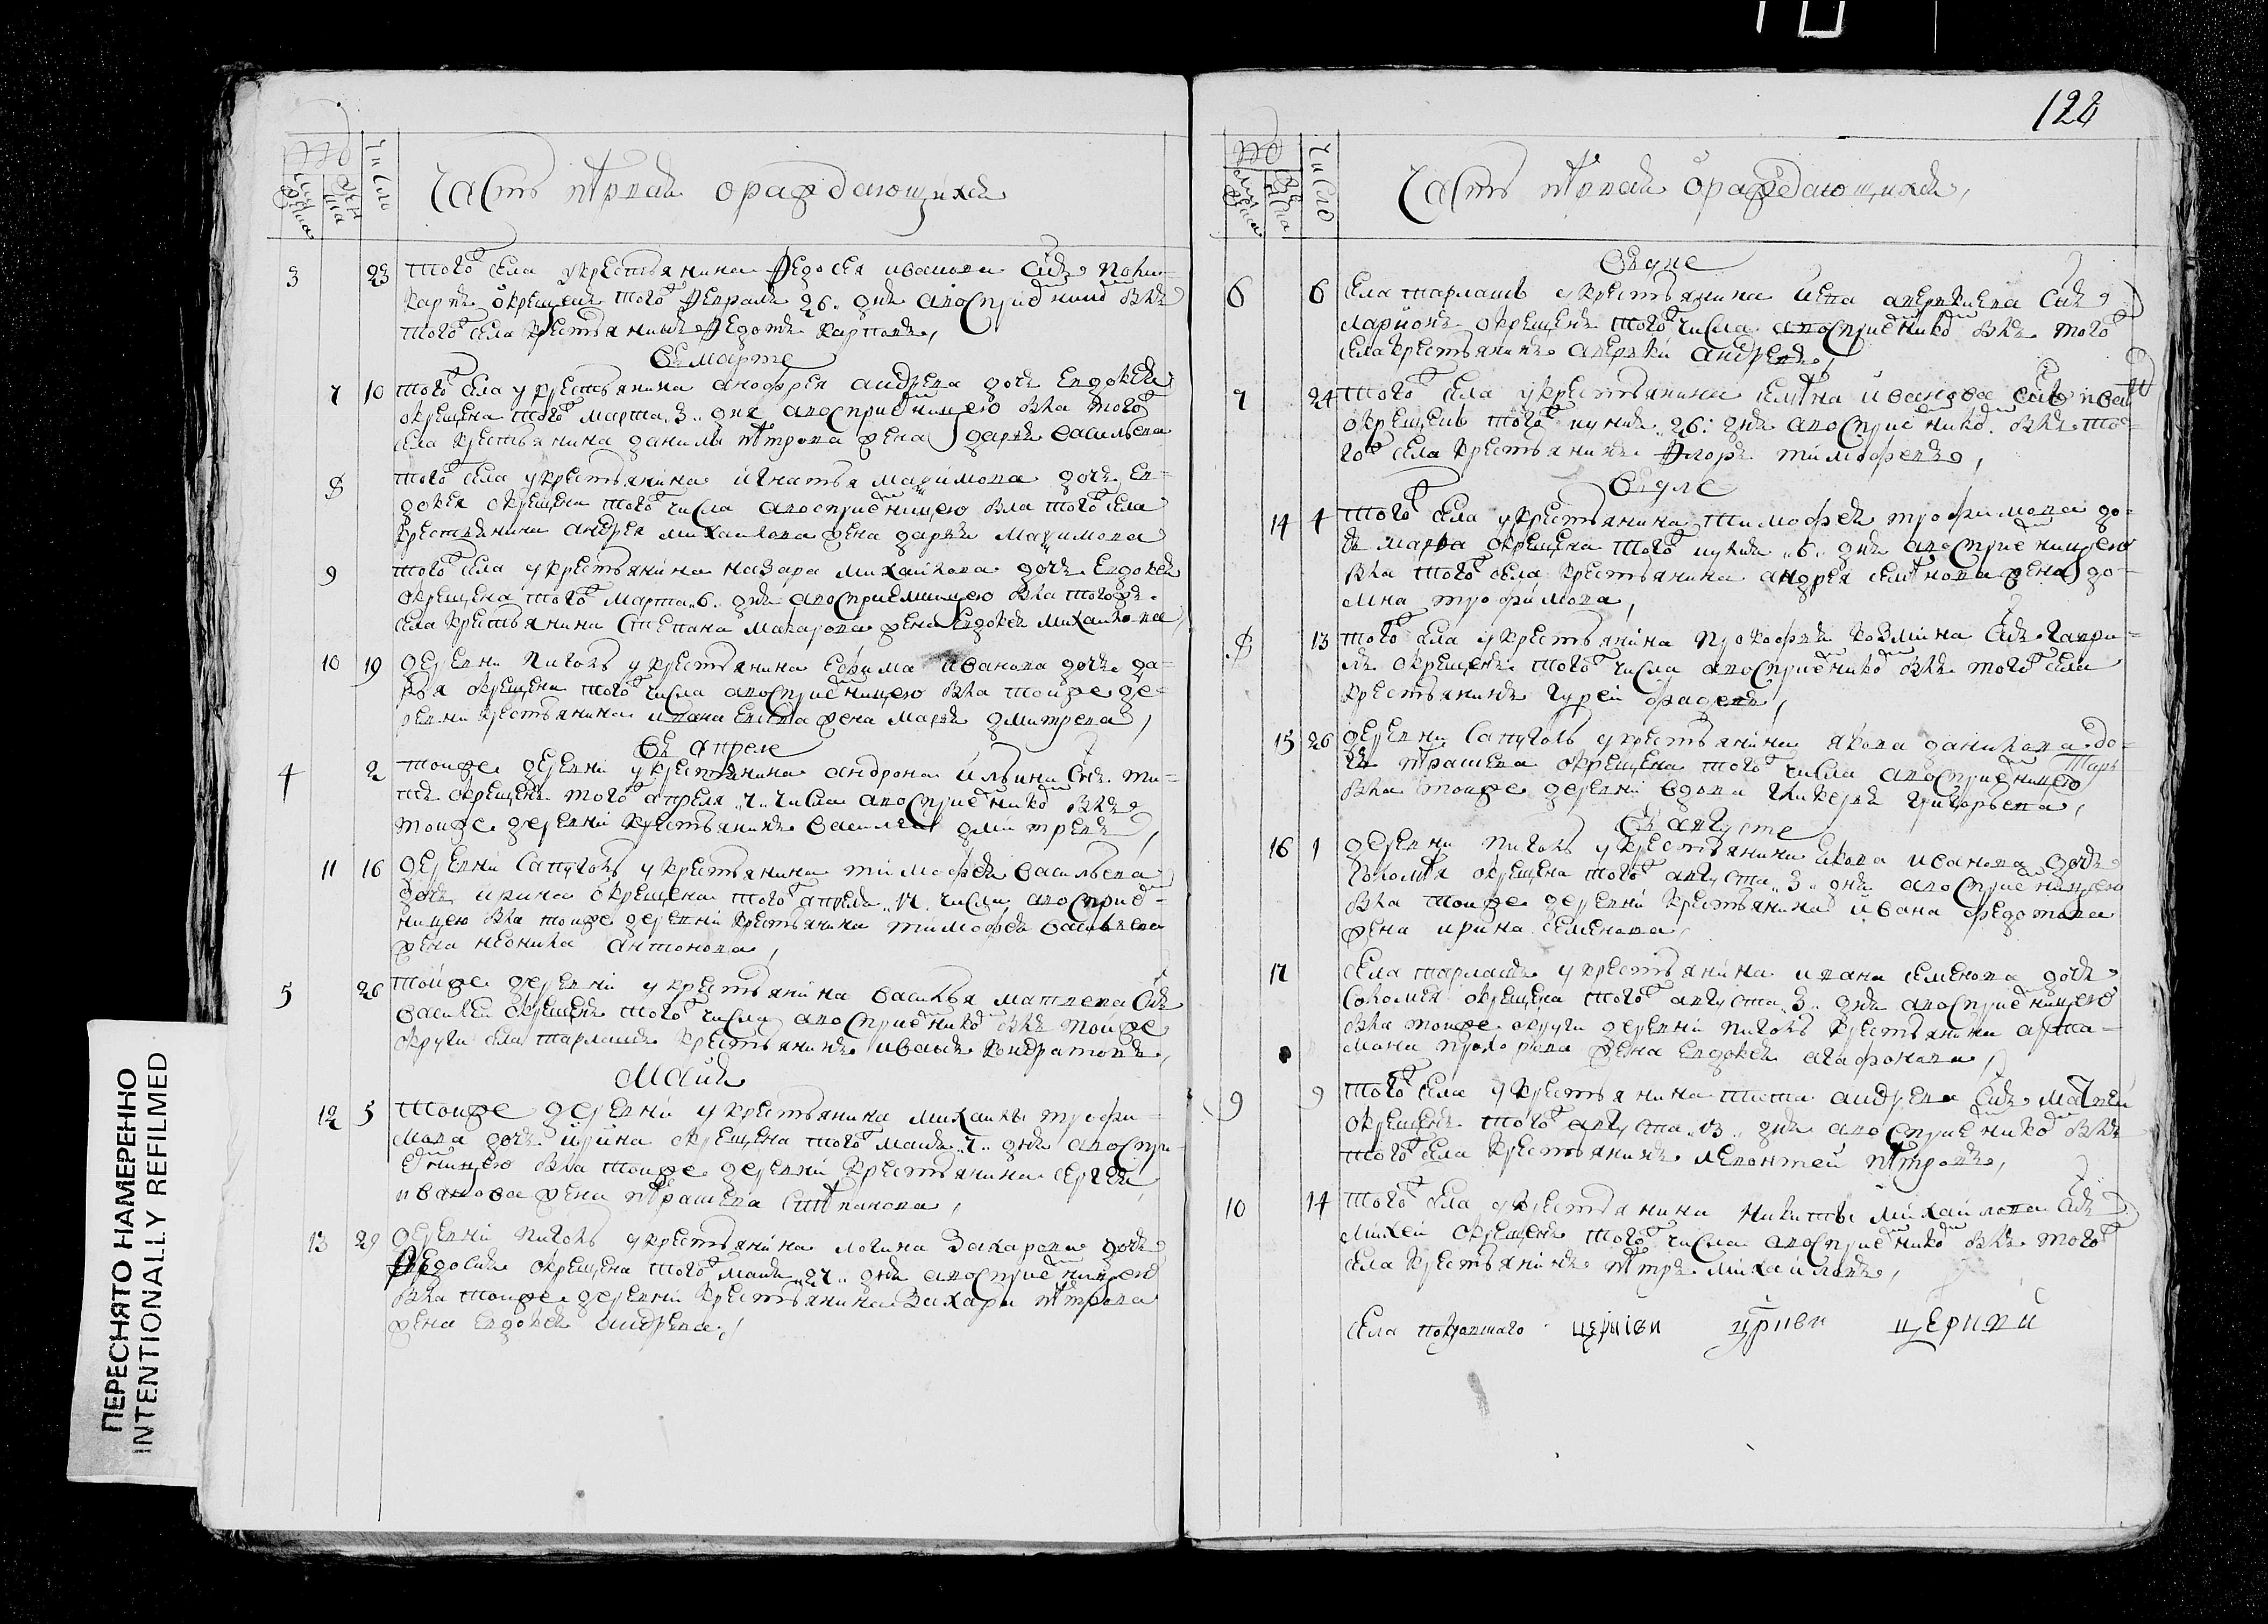 128
Часть первая ораждающихся
3 23 того села у крестьянина Федосея иванова снъ
окрещенъ того Февраля 26 дня воспрїемникомъ былъ
того села крестьянинъ Федотъ карповъ,
въ марте
7 10 того села у крестьянина анофрея андреева дочь евдокея
окрещена того марта 3 дня воспрїемницею была того
села крестьянина данилы петрова жена дарья васильева
8 того села у крестьянина игнатья маѯимова дочь ев-
докея окрещена того числа воспрїемницею была того села
крестьянина андрея михаилова жена дарья маѯимова
9 того села у крестьянина назара михаилова дочь евдокея
окрещена того марта 6 дня воспрїемницею была тогожъ
села крестьянина степана макарова жена евдокея михаилова
10 19 деревни у крестьянина ефима иванова дочь да-
рья окрещена того числа воспрїемницею была тоиже де-
ревни крестьянина ивана жена марья дмитрева,
въ апреле
4 2 тоиже деревнї у крестьянина андрона ильина снъ ти-
окрещенъ того апреля 7 числа воспрїемникомъ былъ
тоиже деревнї крестьянинъ василеи дмїтревъ,
11 16 деревнї у крестьянина тїмофея васильева
дочь ирина окрещена того апреля 17 числа воспрїем-
ницею была тоиже деревнї крестьянина тїмофея васильева
жена антонова,
5 26 тоиже деревнї у крестьянїна василья матвеева снъ
василеи окрещенъ того числа воспрїемникомъ былъ тоиже
округи села тарлашъ крестьянинъ иванъ кондратовъ,
маия
12 5 тоиже деревнї у крестьянина михаилы трофи-
мова дочь ирина окрещена того маия 7 дня воспри-
емницею была тоиже деревнї крестьянина сергея
иванова жена степанова,
13 29 деревнї у крестьянїна логина захарова дочь
Федосья окрещена того маия 27 дня воспрїемницею
была тоиже деревнї крестьянина захара петрова
жена евдокея андреева,
Часть первая ораждающихся,
6 6 села тарлашъ у крестьянина аверкиева снъ
ларионъ окрещенъ того числа воспрїемникомъ былъ того
села крестьянинъ аверкїи андреевъ,
7 24 того села у крестьянина семена иванова снъ иванъ
окрещенъ того иуния 26 дня воспрїемникомъ былъ то-
го села крестьянинъ Флоръ тимофеевъ,
14 4 того села у крестьянина тимофея трофимова до-
чь марѳа окрещена того иулия 6 дня воспрїемницею
была того села крестьянина андрея семенова жена до-
мна трофимова,
8 13 того села у крестьянїна прокофья козмїна снъ гаври-
лъ окрещенъ того числа воспрїемникомъ былъ того села
крестьянинъ гурей фадеевъ,
15 26 деревни у крестьянїна якова данилова до-
чь окрещена того числа воспрїемницею
была тоиже деревнї вдова гликерья григорьева,
въ августе
16 1 деревни у крестьянина якова иванова дочь
соломея окрещена того августа 3 дня воспрїемницею
была тоиже деревнї крестьянина ивана федотова
жена ирина семенова,
17 села тарлашъ у крестьянїна ивана семенова дочь
соломея окрещена того августа 3 дня воспрїемницею
была тоиже округи деревнї крестьянина арта-
мона прохорова жена евдокея агафонова,
9 9 того села у крестьянина тита андреева снъ матвеи
окрещенъ того августа 13 дня воспрїемникомъ былъ
того села крестьянинъ леонтей петровъ,
10 14 того села у крестьянина никиты михаилова снъ
михеи окрещенъ того числа воспрїемникомъ былъ того
села крестьянинъ петръ михаиловъ,
села покровшаго церкви
ПЕРЕСНЯТО НАМЕРЕННО
INTENTIONALLY REFILMED